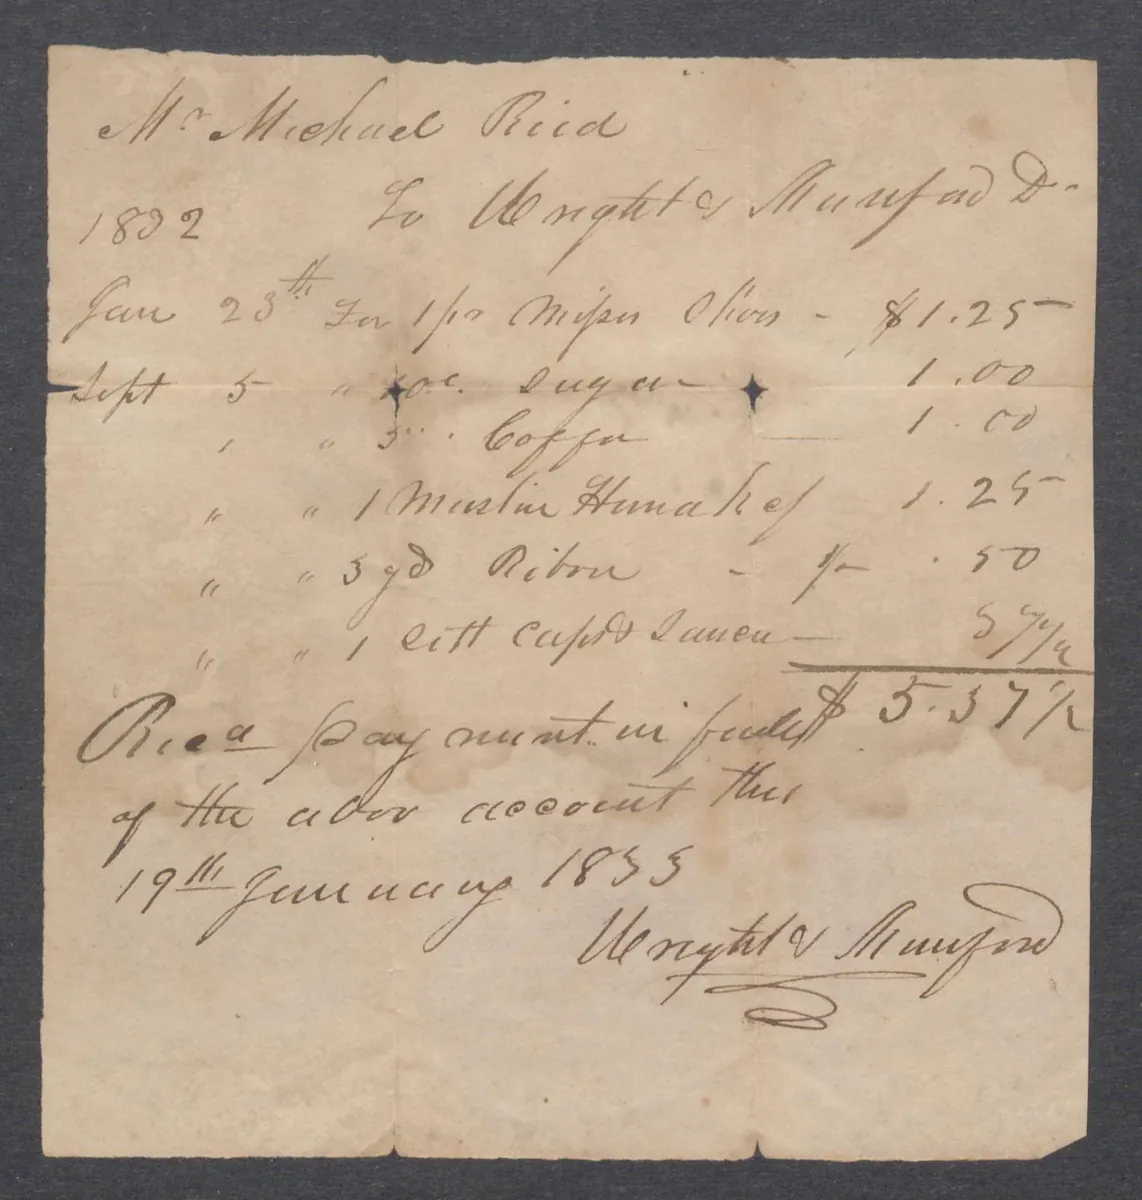 Mr Michael Reed
1832 To Wright & Munford Dr
Jan 23th For 1 pr Misses Shoes - $1.25
Sept 5 " 10 Sugar 1.00
" " 5 " Coffee 1.00
" " 1 Muslin Handkcf 1.25
" " 3 yd Ribon - .50
" " 1 Sett Cups & Saucers 37 1/2
$5.37 1/2
Recd payment in full
of the above account this
19th January 1833
Wright & Munford